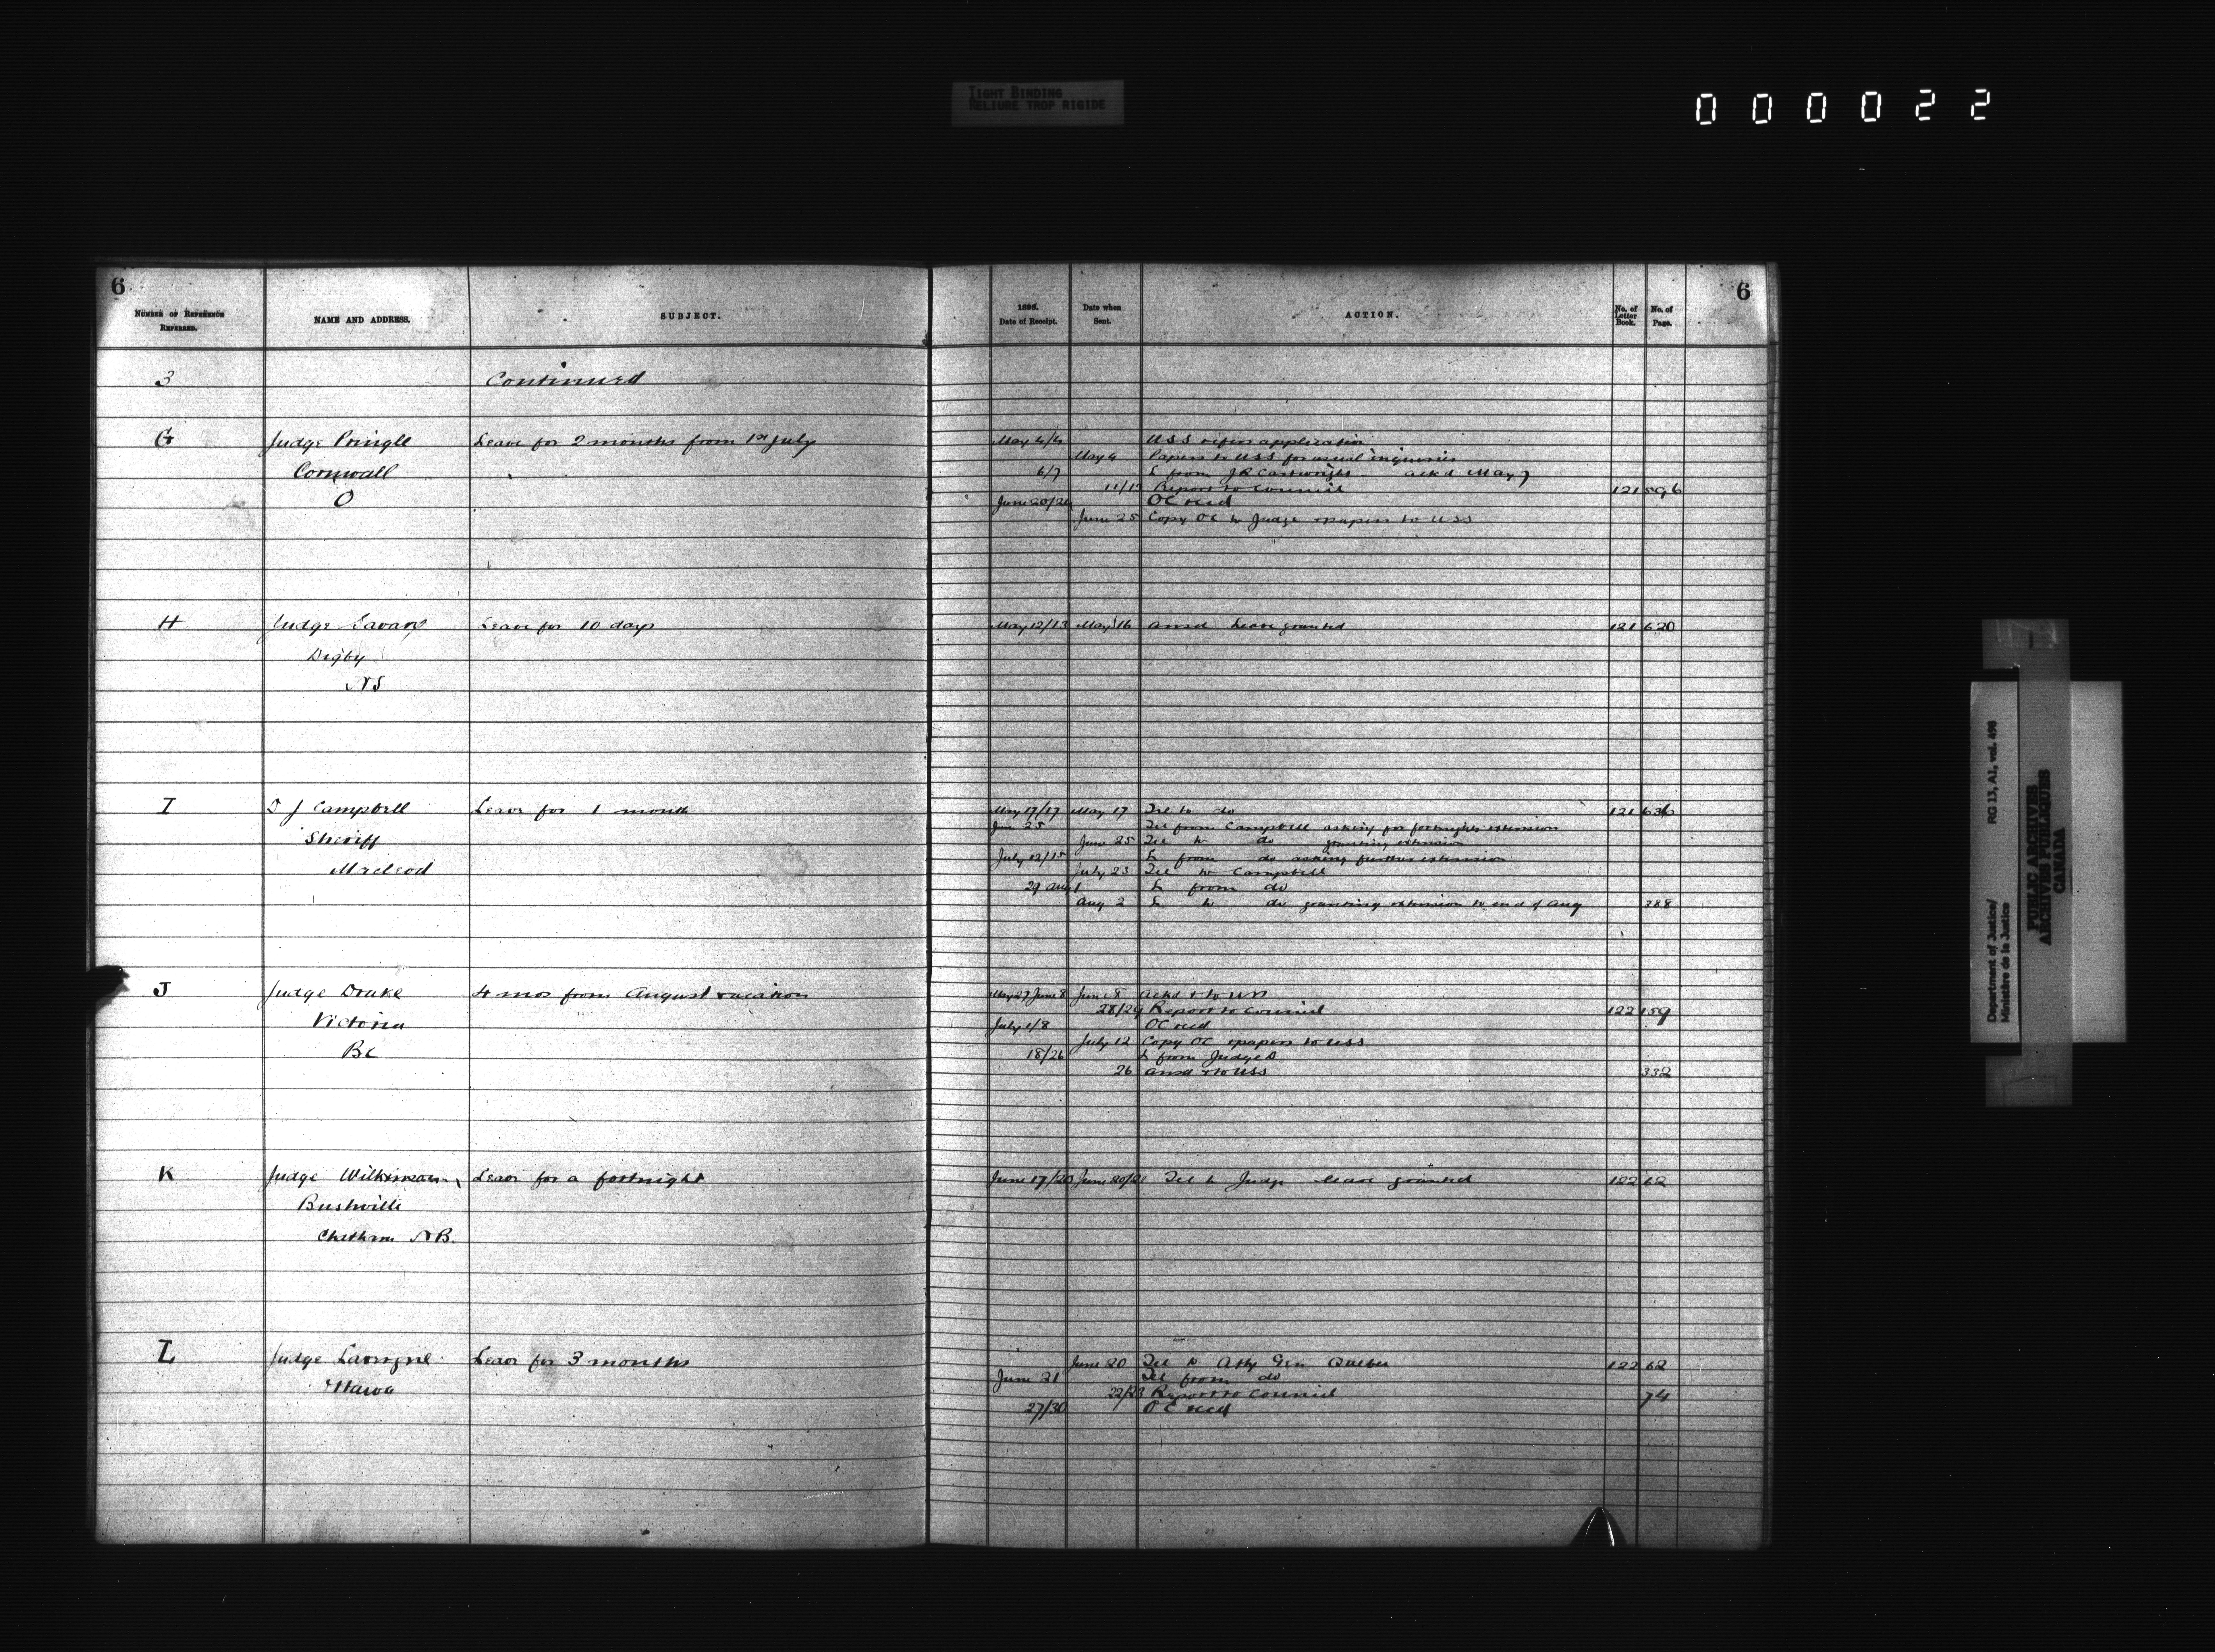 TIGHT BINDING
RELIURE TROP RIGIDE
000022
6
NUMBER OF REFERENCE REFERRED.
NAME AND ADDRESS.
SUBJECT.
1898. Date of Receipt.
Date when Sent.
ACTION.
No. of Letter Book.
No. of Page.
6
3 Continued
G Judge Pringle Leave for 2 months from 1st July May 4/4 USS refers application
May 4 Papers to USS for usual inquiries
Cornwall 6/7 L from J R Cartwright ackd May 7
11/12 Report to Council 121 596
O June 20/24 OC recd
June 25 Copy OC to Judge & papers to USS
H Judge Savary Leave for 10 days May 12/13 May 16 ansd Leave granted 121 620
Digby
NS
I D J Campbell Leave for 1 month May 17/17 May 17 Tel to do 121 636
June 25 Tel from Campbell asking for fortnights extension
Sheriff June 25 Tel to do granting extension
July 12/15 L from do asking further extension
Macleod July 23 Tel to Campbell
29 Aug 1 L from do
Aug 2 L to do granting extension to end of Aug 388
J Judge Drake 4 mos from August vacation May 27 June 8 June 8 ackd & to
28/29 Report to Council 122 159
Victoria July 1/8 OC recd
July 12 Copy OC & papers to USS
BC 18/26 L from Judge D
26 ansd & to USS 332
K Judge Wilkinson Leave for a fortnight June 17/20 June 20/21 Tel to Judge leave granted 122 62
Bushville
Chatham NB.
L Judge Lavergne Leave for 3 months June 20 Tel to Atty Gen Quebec 122 62
June 21 Tel from do
Ottawa 22/23 Report to Council 74
27/30 OC recd
Department of Justice/
Ministère de la Justice
RG 13, A1, vol. 498
PUBLIC ARCHIVES
ARCHIVES PUBLIQUES
CANADA